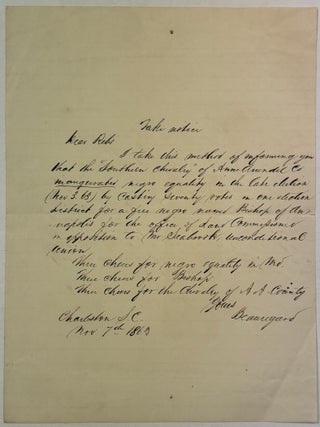 Take notice
Dear Rebs
I take this method of informing you
that the "Southern Chivalry" of Ann Arundel Co
inaugurated negro equality in the late election
(Nov 3. 63) by casting Seventy votes in one election
district for a free negro named Bishop of Ann
napolis for the office of Land Commissioner
in opposition to Mr Seabrook, unconditional
Union.
Three cheers for negro equality in Md.
Three cheers for Bishop
Three cheers for the Chivalry of A. A. County
Yours
Beauregard
Charleston S. C.
Nov 7th 1863